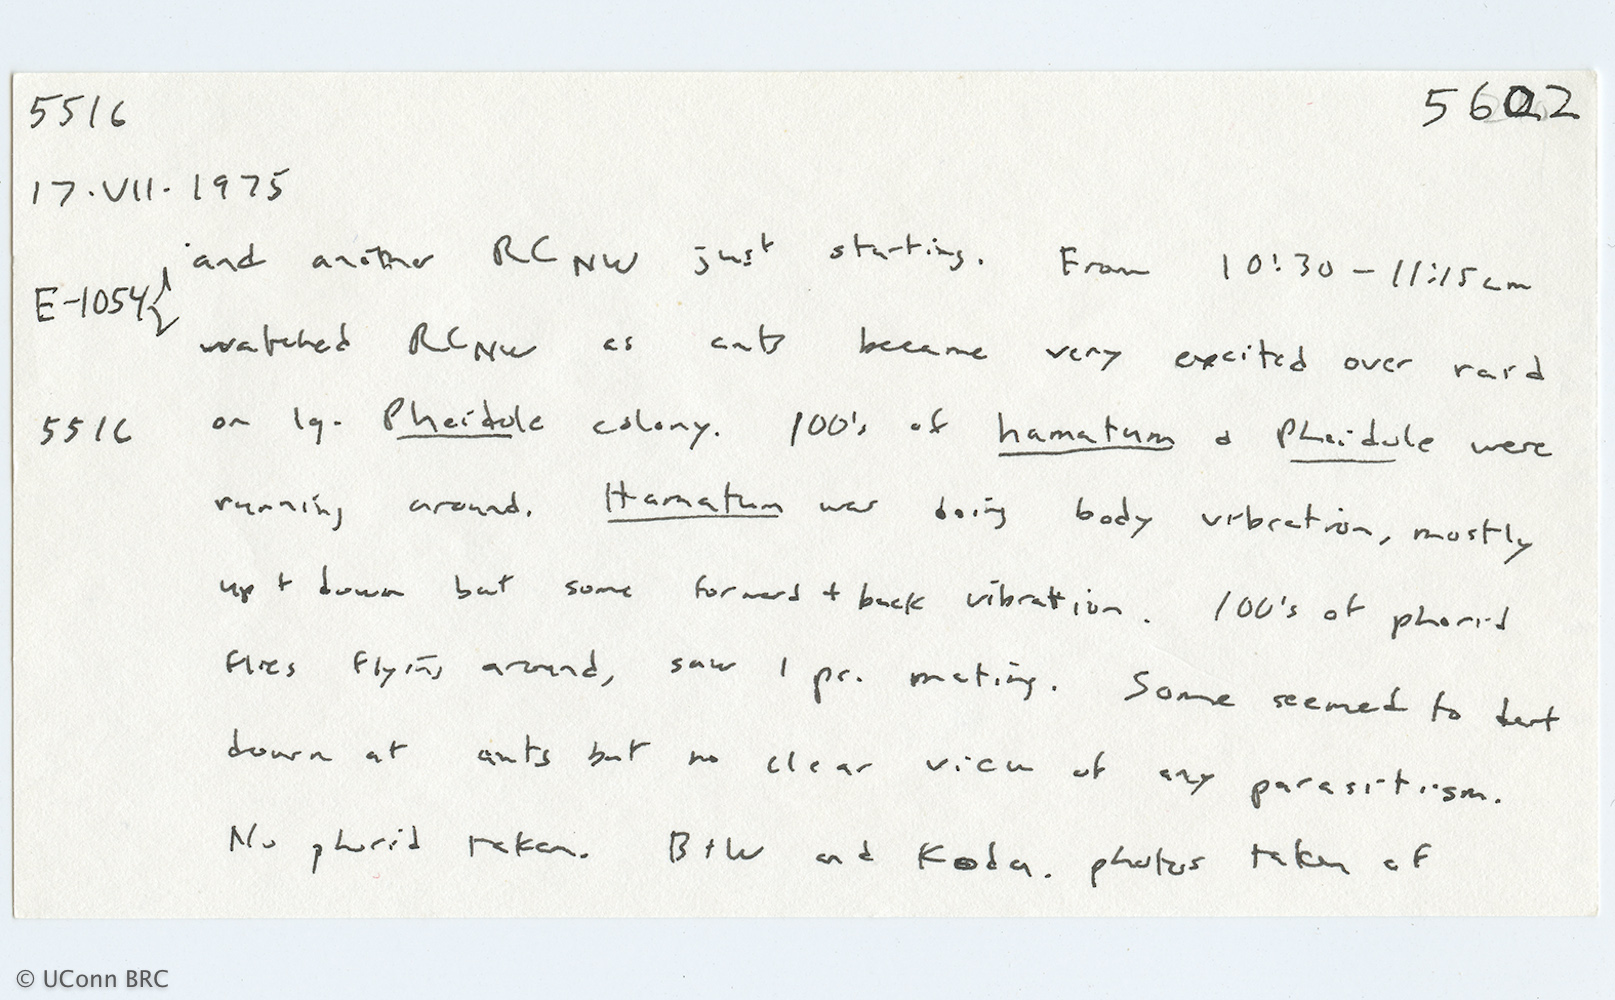 5516
5602
17.VII.1975
and another RC NW just starting. From 10:30-11:15am
E-1054{
watched RC NW as ants became very excited over raid
5516
on lg. Pheidole colony. 100's of hamatum & Pheidole were
running around. Hamatum was doing body vibration, mostly
up + down but some forward + back vibration. 100's of phorid
flies flying around, saw 1 pr. mating. Some seemed to dart
down at ants but no clear view of any parasitism.
No phorid taken. B+W and Koda. photos taken of
© UConn BRC